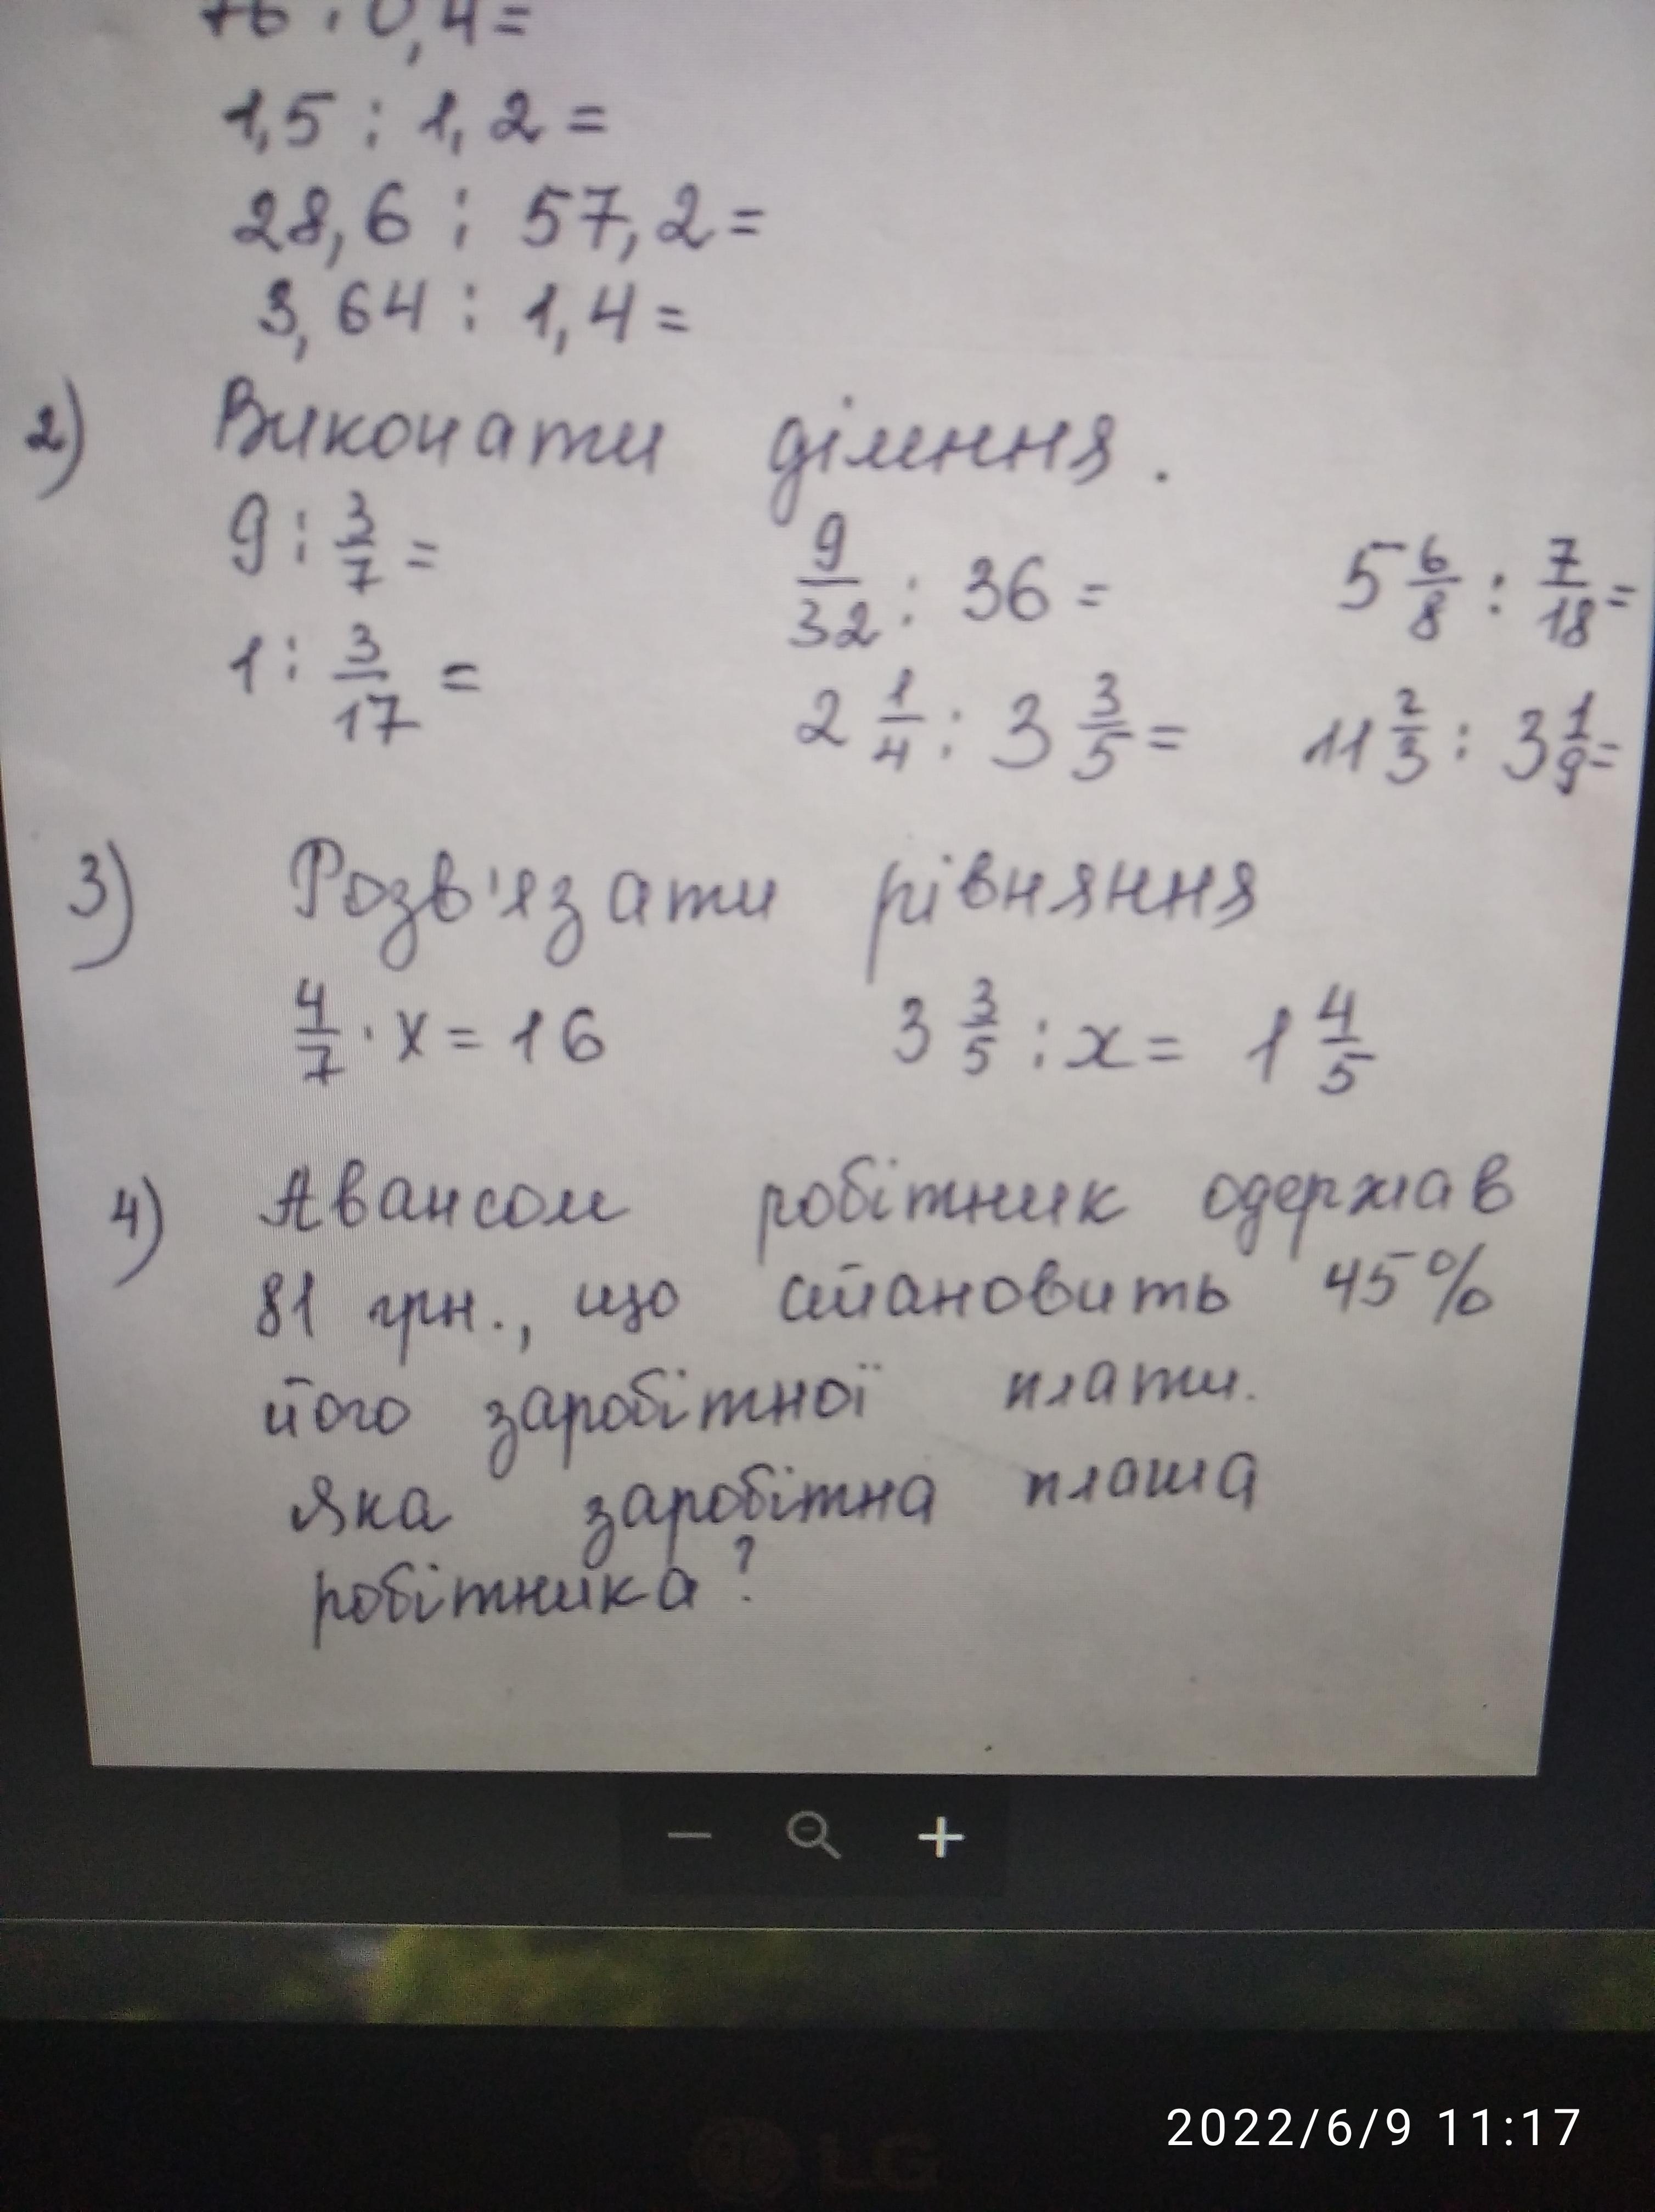 76 : 0,4 =
1,5 : 1,2 =
28,6 : 57,2 =
3,64 : 1,4 =
2) Виконати ділення.
9 : 3/7 = 9/32 : 36 = 5 6/8 : 7/18 =
1 : 3/17 = 2 1/4 : 3 3/5 = 11 2/3 : 3 1/9 =
3) Розв'язати рівняння
4/7 · x = 16 3 3/5 : x = 1 4/5
4) Авансом робітник одержав
81 грн., що становить 45%
його заробітної плати.
Яка заробітна плата
робітника?
2022/6/9 11:17
LG